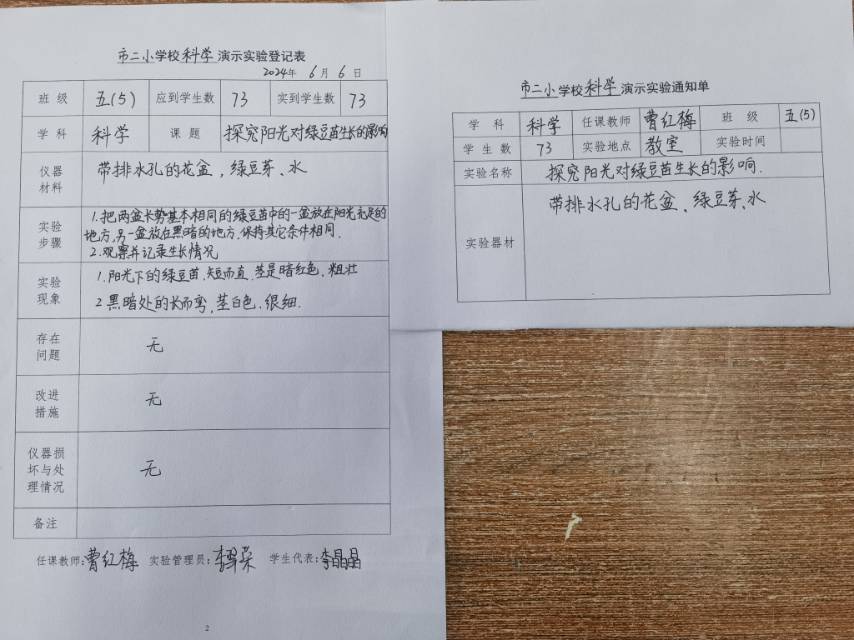 市二小学校科学演示实验登记表
2024年 6月 6日
班级 五(5) 应到学生数 73 实到学生数 73
学科 科学 课题 探究阳光对绿豆苗生长的影响
仪器材料 带排水孔的花盆，绿豆芽、水
实验步骤 1.把两盆长势基本相同的绿豆苗中的一盆放在阳光充足的
地方,另一盆放在黑暗的地方.保持其它条件相同.
2.观察并记录生长情况
实验现象 1.阳光下的绿豆苗,矢豆而直.茎是暗红色,粗壮
2黑暗处的长而弯,茎白色.很细.
存在问题 无
改进措施 无
仪器损坏与处理情况 无
备注
任课教师:曹红梅 实验管理员: 学生代表:李晶晶
2
市二小学校科学演示实验通知单
学科 科学 任课教师 曹红梅 班级 五(5)
学生数 73 实验地点 教室 实验时间
实验名称 探究阳光对绿豆苗生长的影响.
实验器材 带排水孔的花盆、绿豆芽、水